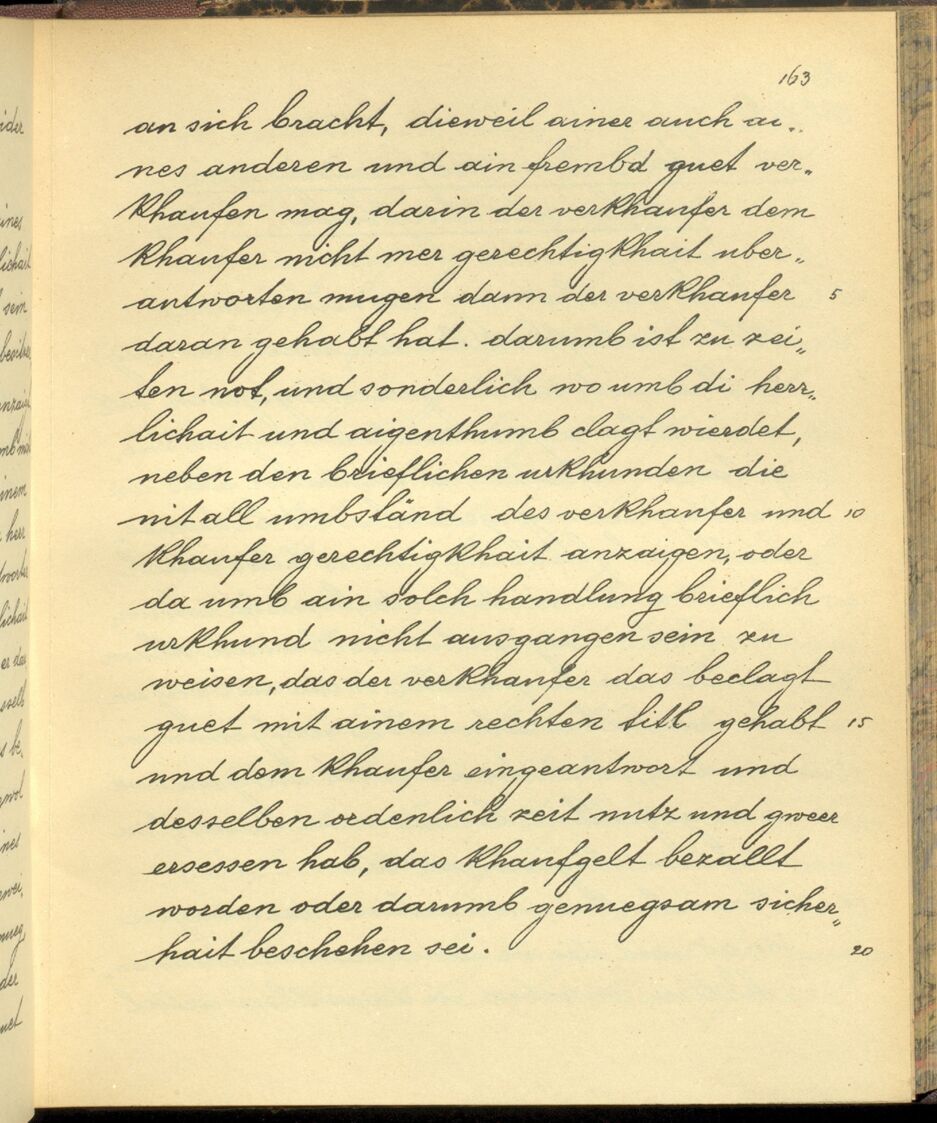 163
an sich bracht, dieweil ainer auch ai„
nes anderen und ain frembd guet ver„
khaufen mag, darin der verkhaufer dem
khaufer nicht mer gerechtigkhait uber„
antworten mugen dann der verkhaufer 5
daran gehabt hat. darumb ist zu zei„
ten not, und sonderlich wo umb di herr„
lichait und aigenthumb clagt wierdet,
neben den brieflichen urkhunden die
nit all umbständ des verkhaufer und 10
khaufer gerechtigkhait anzaigen, oder
da umb ain solch handlung brieflich
urkhund nicht ausgangen sein zu
weisen, das der verkhaufer das beclagt
guet mit ainem rechten titl gehabt 15
und dem khaufer eingeantwort und
desselben ordenlich zeit nutz und gweer
ersessen hab, das khaufgelt bezallt
worden oder darumb genuegsam sicher„
hait beschehen sei. 20